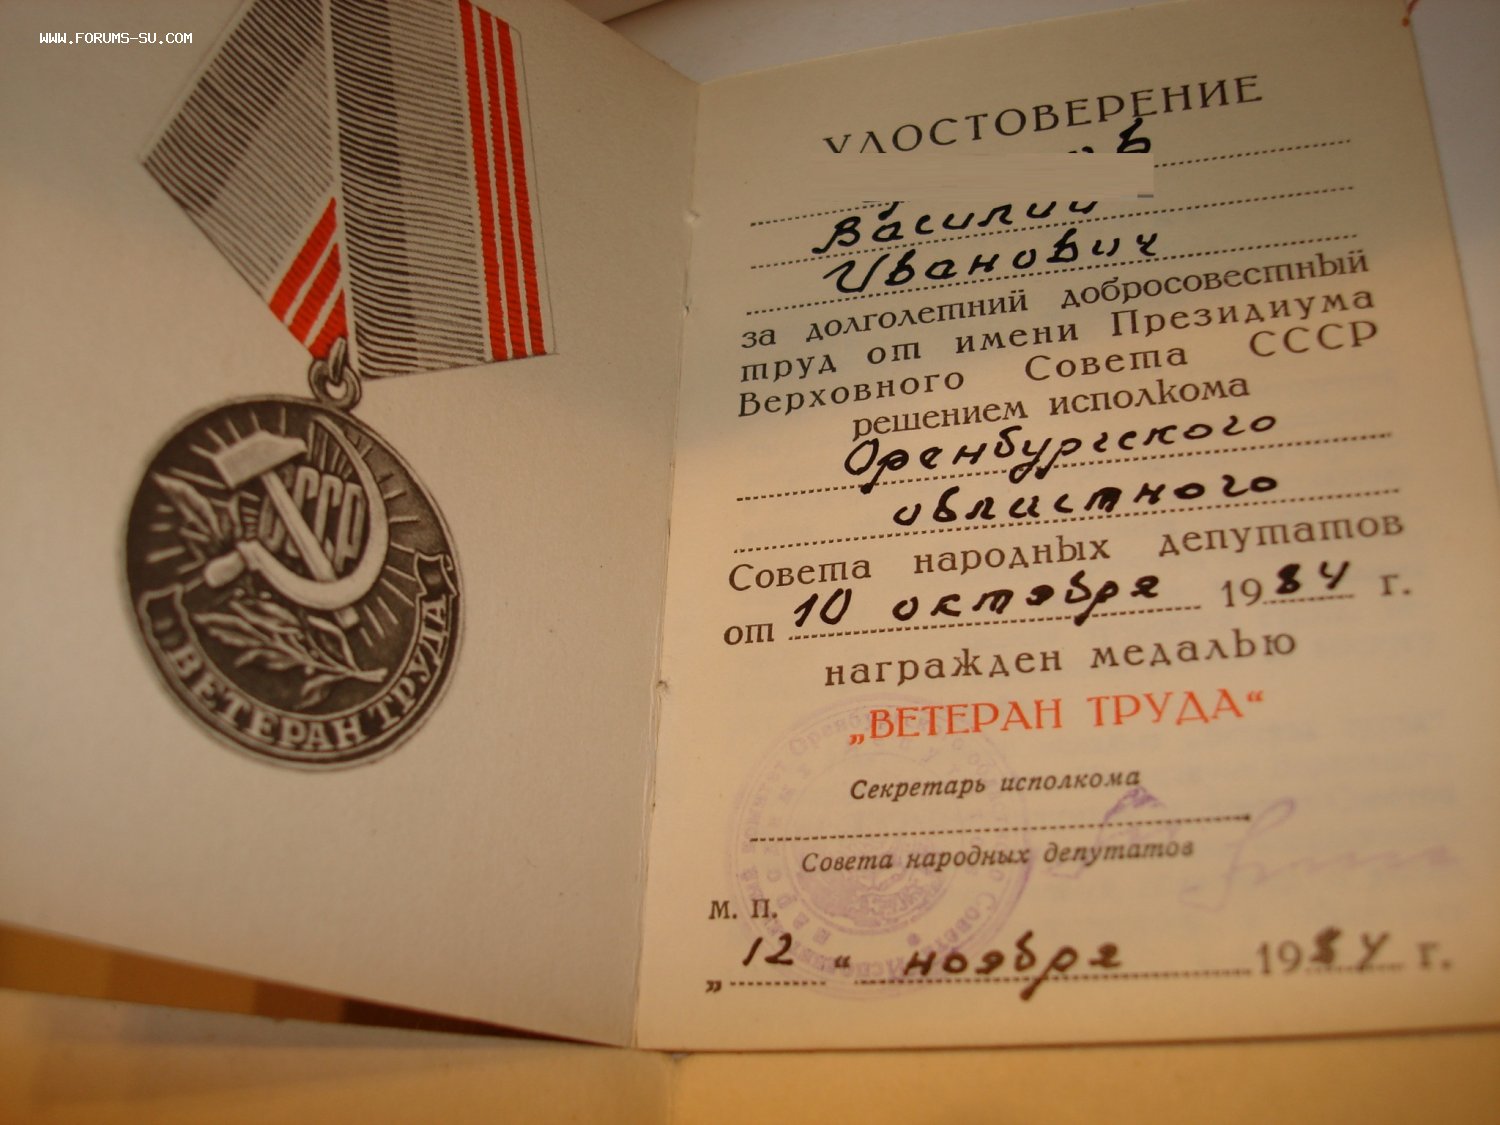 WWW.FORUMS-SU.COM
СССР
ВЕТЕРАН ТРУДА
УДОСТОВЕРЕНИЕ
Василий
Иванович
за долголетний добросовестный
труд от имени Президиума
Верховного Совета СССР
решением исполкома
Оренбургского
областного
Совета народных депутатов
от 10 октября 1984 г.
награжден медалью
„ВЕТЕРАН ТРУДА“
Секретарь исполкома
Совета народных депутатов
М. П.
„12“ ноября 1984 г.